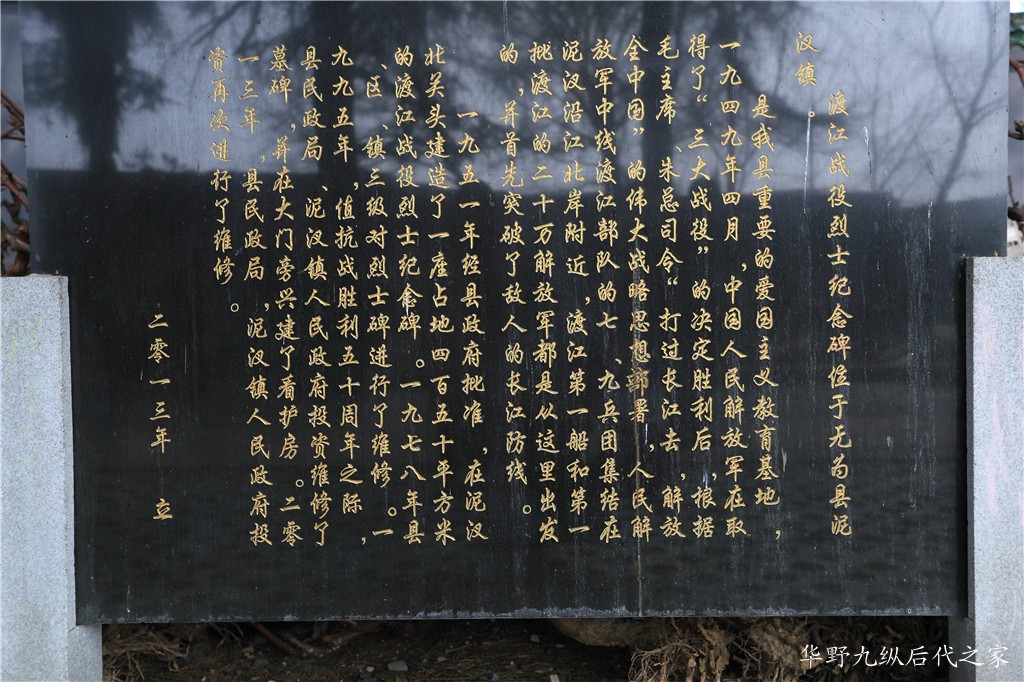 渡江战役烈士纪念碑位于无为县泥
汉镇。
是我县重要的爱国主义教育基地，
一九四九年四月，中国人民解放军在取
得了“三大战役”的决定胜利后，根据
毛主席、朱总司令“打过长江去，解放
全中国”的伟大战略思想部署，人民解
放军中线渡江部队的七、九兵团集结在
泥汊沿江北岸附近，渡江第一船和第一
批渡江的二十万解放军都是从这里出发
的，并首先突破了敌人的长江防线。
一九五一年经县政府批准，在泥汊
北关头建造了一座占地四百五十平方米
的渡江战役烈士纪念碑。一九七八年县
、区、镇三级对烈士碑进行了维修。一
九九五年，值抗战胜利五十周年之际，
县民政局、泥汊镇人民政府投资维修了
墓碑，并在大门旁兴建了看护房。二零
一三年，县民政局，泥汊镇人民政府投
资再次进行了维修。
二零一三年 立
华野九纵后代之家